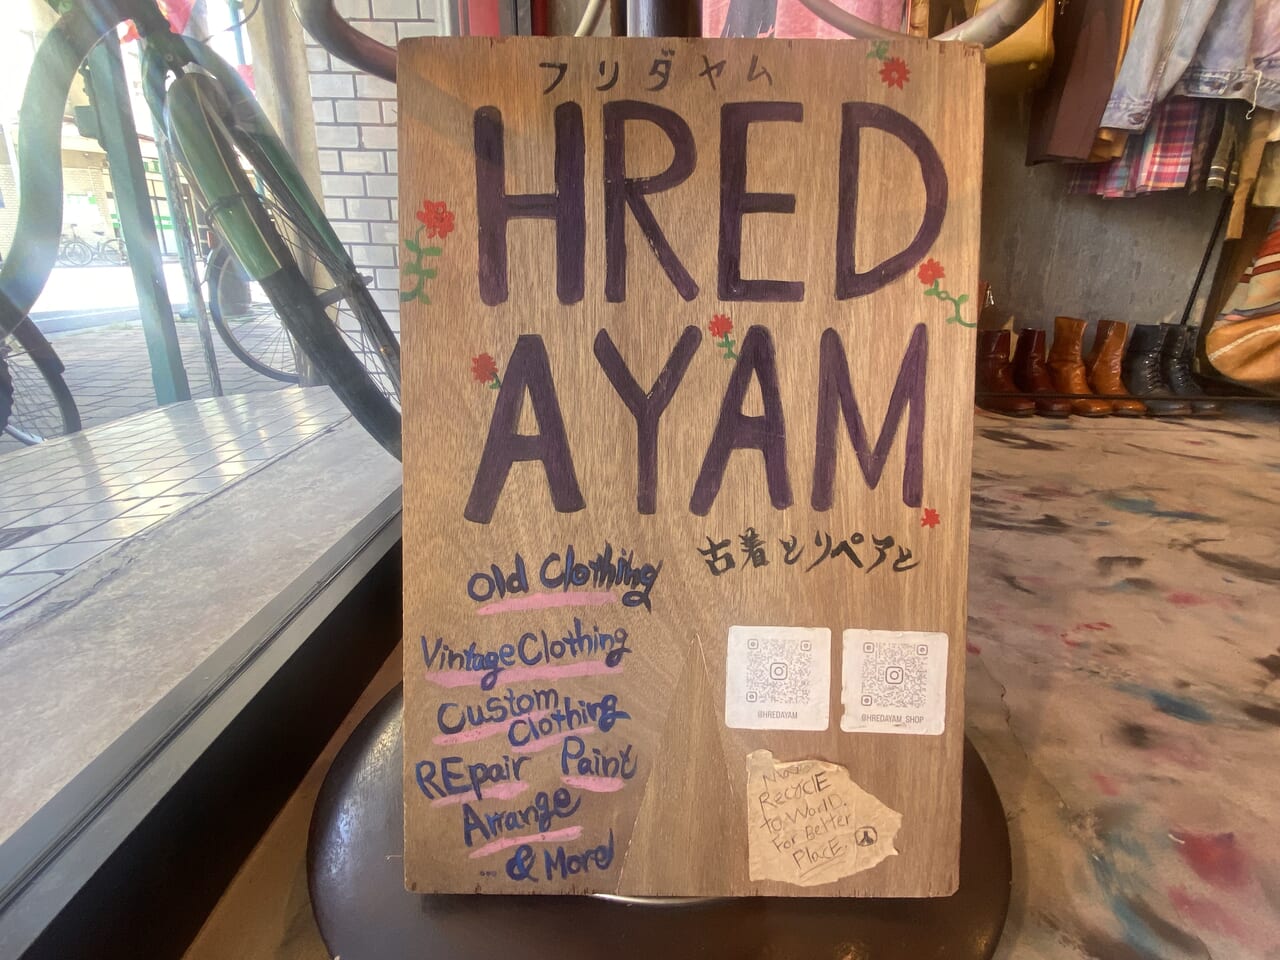 フリダヤム
HRED
AYAM
古着とリペアと
Old Clothing
Vintage Clothing
Custom
Clothing
REpair Paint
Arrange
... & More
@HREDAYAM
@HREDAYAM_SHOP
RECYClE
to WorlD.
For BetTer
PlacE.